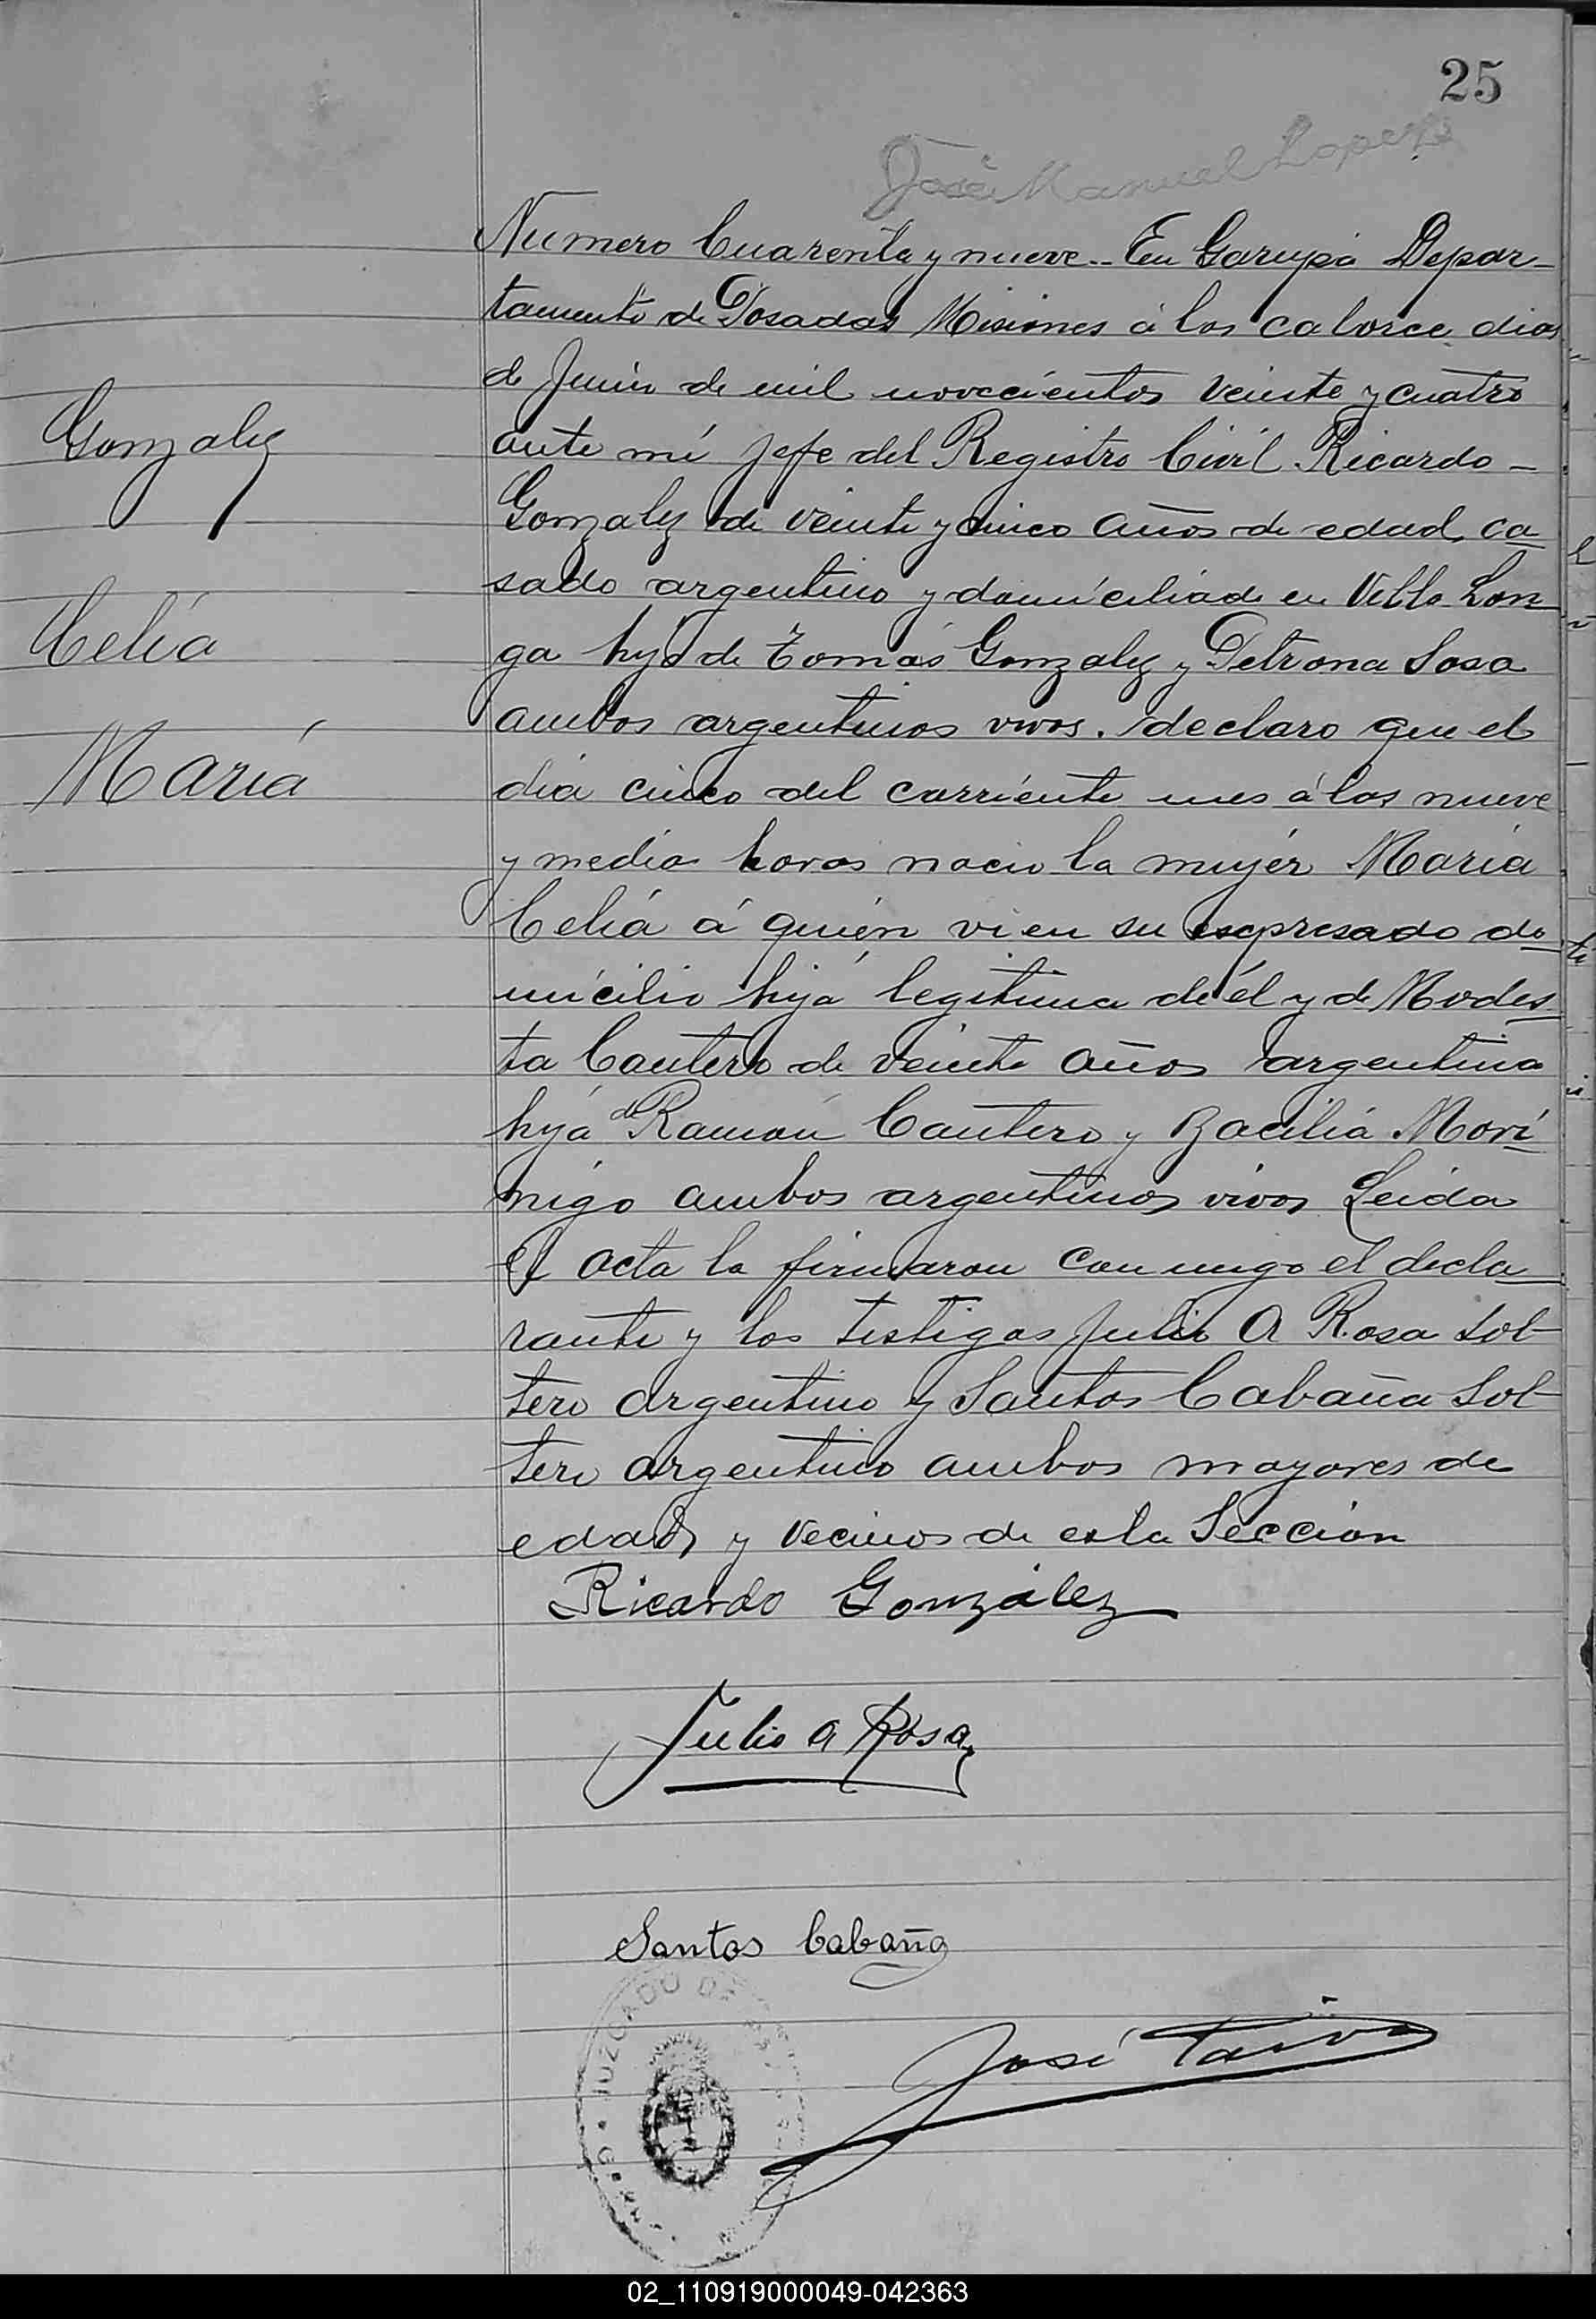 25
José Manuel Lopez
Numero Cuarenta y nueve.. En Garupá Depar-
tamento de Posadas Misiones á los catorce dias
de Junio de mil novecientos veinte y cuatro
Gonzalez
ante mí Jefe del Registro Civil Ricardo -
Gonzalez de veinte y cinco años de edad, ca
sado argentino y domiciliado en Villa Lon
Celia
ga hijo de Tomás Gonzalez y Petrona Sosa
ambos argentinos vivos. declaro que el
María
dia cinco del corriente mes á las nueve
y media horas nacio la mujer María
Celia á quién vi en su espresado do
micilio hija legitima de él y de Modes
ta Cantero de veinte años argentina
hija de Ramón Cantero y Bacilia Mori
nigo ambos argentinos vivos Leida
el acta la firmaron conmigo el decla
rante y los testigos Julio A Rosa sol-
tero argentino y Santos Cabaña sol-
tero argentino ambos mayores de
edad, y vecinos de esta Sección
Ricardo González
Julio A Rosa
Santos Cabaña
JUZGADO DE
José
02_110919000049-042363